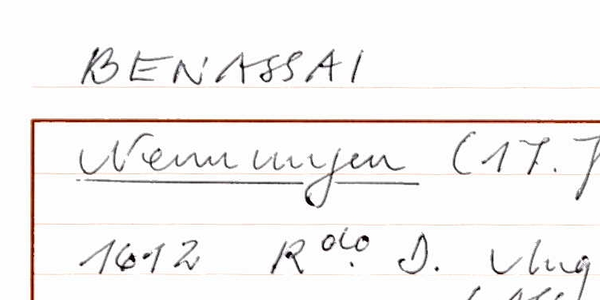 BENASSAI
Nennungen (17.J
1612 R^do. D. Ulug